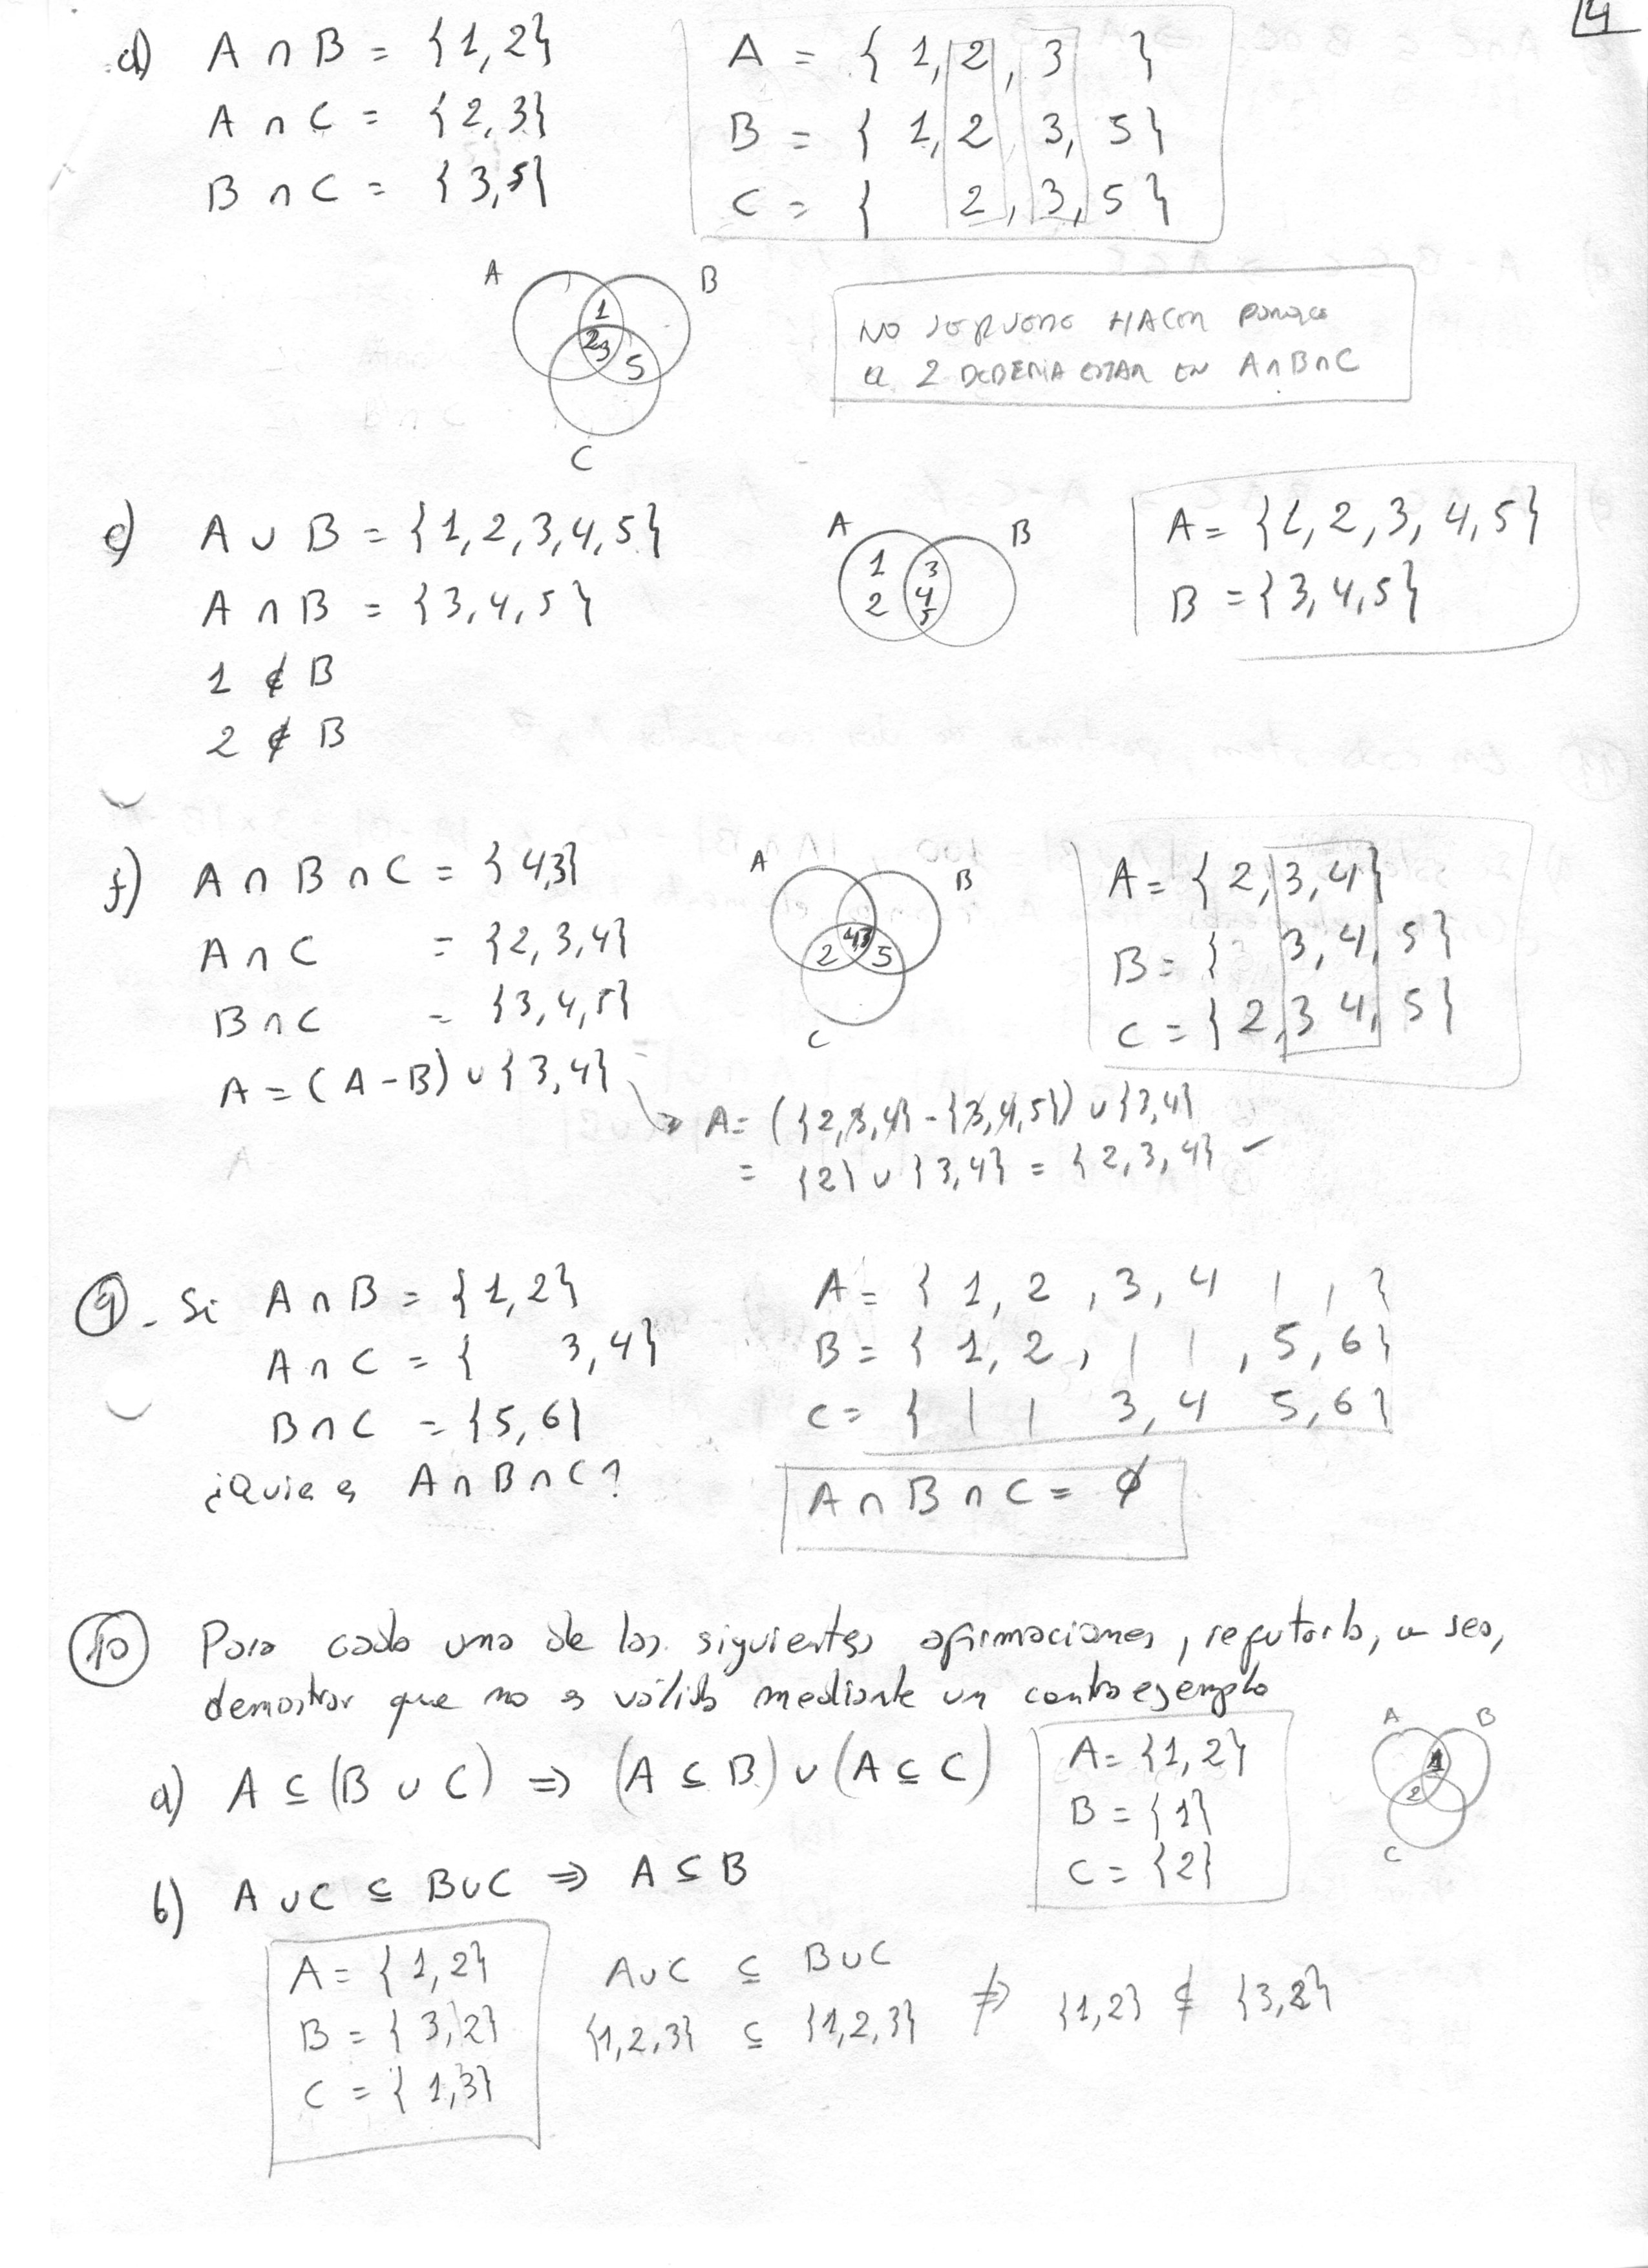 4
d) A ∩ B = {1,2}
A ∩ C = {2,3}
B ∩ C = {3,5}
A = { 1, 2, 3 }
B = { 1, 2 3, 5}
C = { 2, 3, 5}
A B
1
2 3
5
C
NO SE PUEDE HACER PORQUE
EL 2 DEBERIA ESTAR EN A∩B∩C
e) A ∪ B = {1,2,3,4,5}
A ∩ B = {3,4,5}
1 ∉ B
2 ∉ B
A B
1 3
2 4
5
A = {1,2,3,4,5}
B = {3,4,5}
f) A ∩ B ∩ C = {4,3}
A ∩ C = {2,3,4}
B ∩ C = {3,4,5}
A = (A-B) ∪ {3,4}
A B
2 43 5
C
A = { 2, 3, 4}
B = { 3, 4, 5}
C = { 2, 3 4, 5}
A = ({2,3,4} - {3,4,5}) ∪ {3,4}
= {2} ∪ {3,4} = {2,3,4}
9 - Si A ∩ B = {1,2}
A ∩ C = { 3,4}
B ∩ C = {5,6}
¿Quie es A ∩ B ∩ C?
A = { 1, 2 , 3, 4 | , | , }
B = { 1, 2, | | , 5, 6}
C = { | | 3, 4 5, 6}
A ∩ B ∩ C = ∅
10 Para cada una de las siguientes afirmaciones, refutarla, o sea,
demostrar que no es válida mediante un contraejemplo
a) A ⊆ (B ∪ C) ⇒ (A ⊆ B) ∪ (A ⊆ C)
A = {1,2}
B = {1}
C = {2}
A B
1
2
C
b) A ∪ C ⊆ B ∪ C ⇒ A ⊆ B
A = {1,2}
B = {3,2}
C = {1,3}
A∪C ⊆ B∪C
{1,2,3} ⊆ {1,2,3} ⇏ {1,2} ⊈ {3,2}